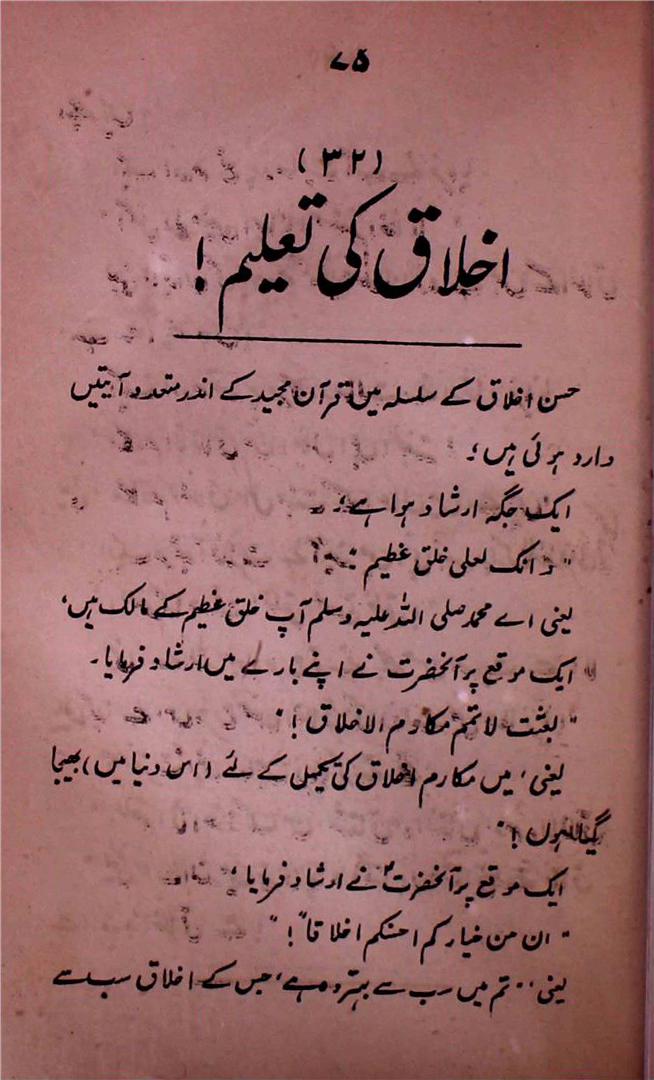 ۷۵
(۳۲)
اخلاق کی تعلیم!
حسن اخلاق کے سلسلہ میں قرآن مجید کے اندر متعدد آیتیں
وارد ہوئی ہیں؛
ایک جگہ ارشاد ہوا ہے؛
"وانک لعلی خلق عظیم"
یعنی اے محمد صلی اللہ علیہ وسلم آپ خلق عظیم کے مالک ہیں،
ایک موقع پر آنحضرت نے اپنے بارے میں ارشاد فرمایا۔
"بعثت لاتمم مکارم الاخلاق!"
یعنی، میں مکارم اخلاق کی تکمیل کے لئے (اس دنیا میں) بھیجا
گیا ہوں!"
ایک موقع پر آنحضرتؐ نے ارشاد فرمایا،
"ان من خیارکم احسنکم اخلاقاً!"
یعنی، "تم میں سب سے بہتر وہ ہے، جس کے اخلاق سب سے